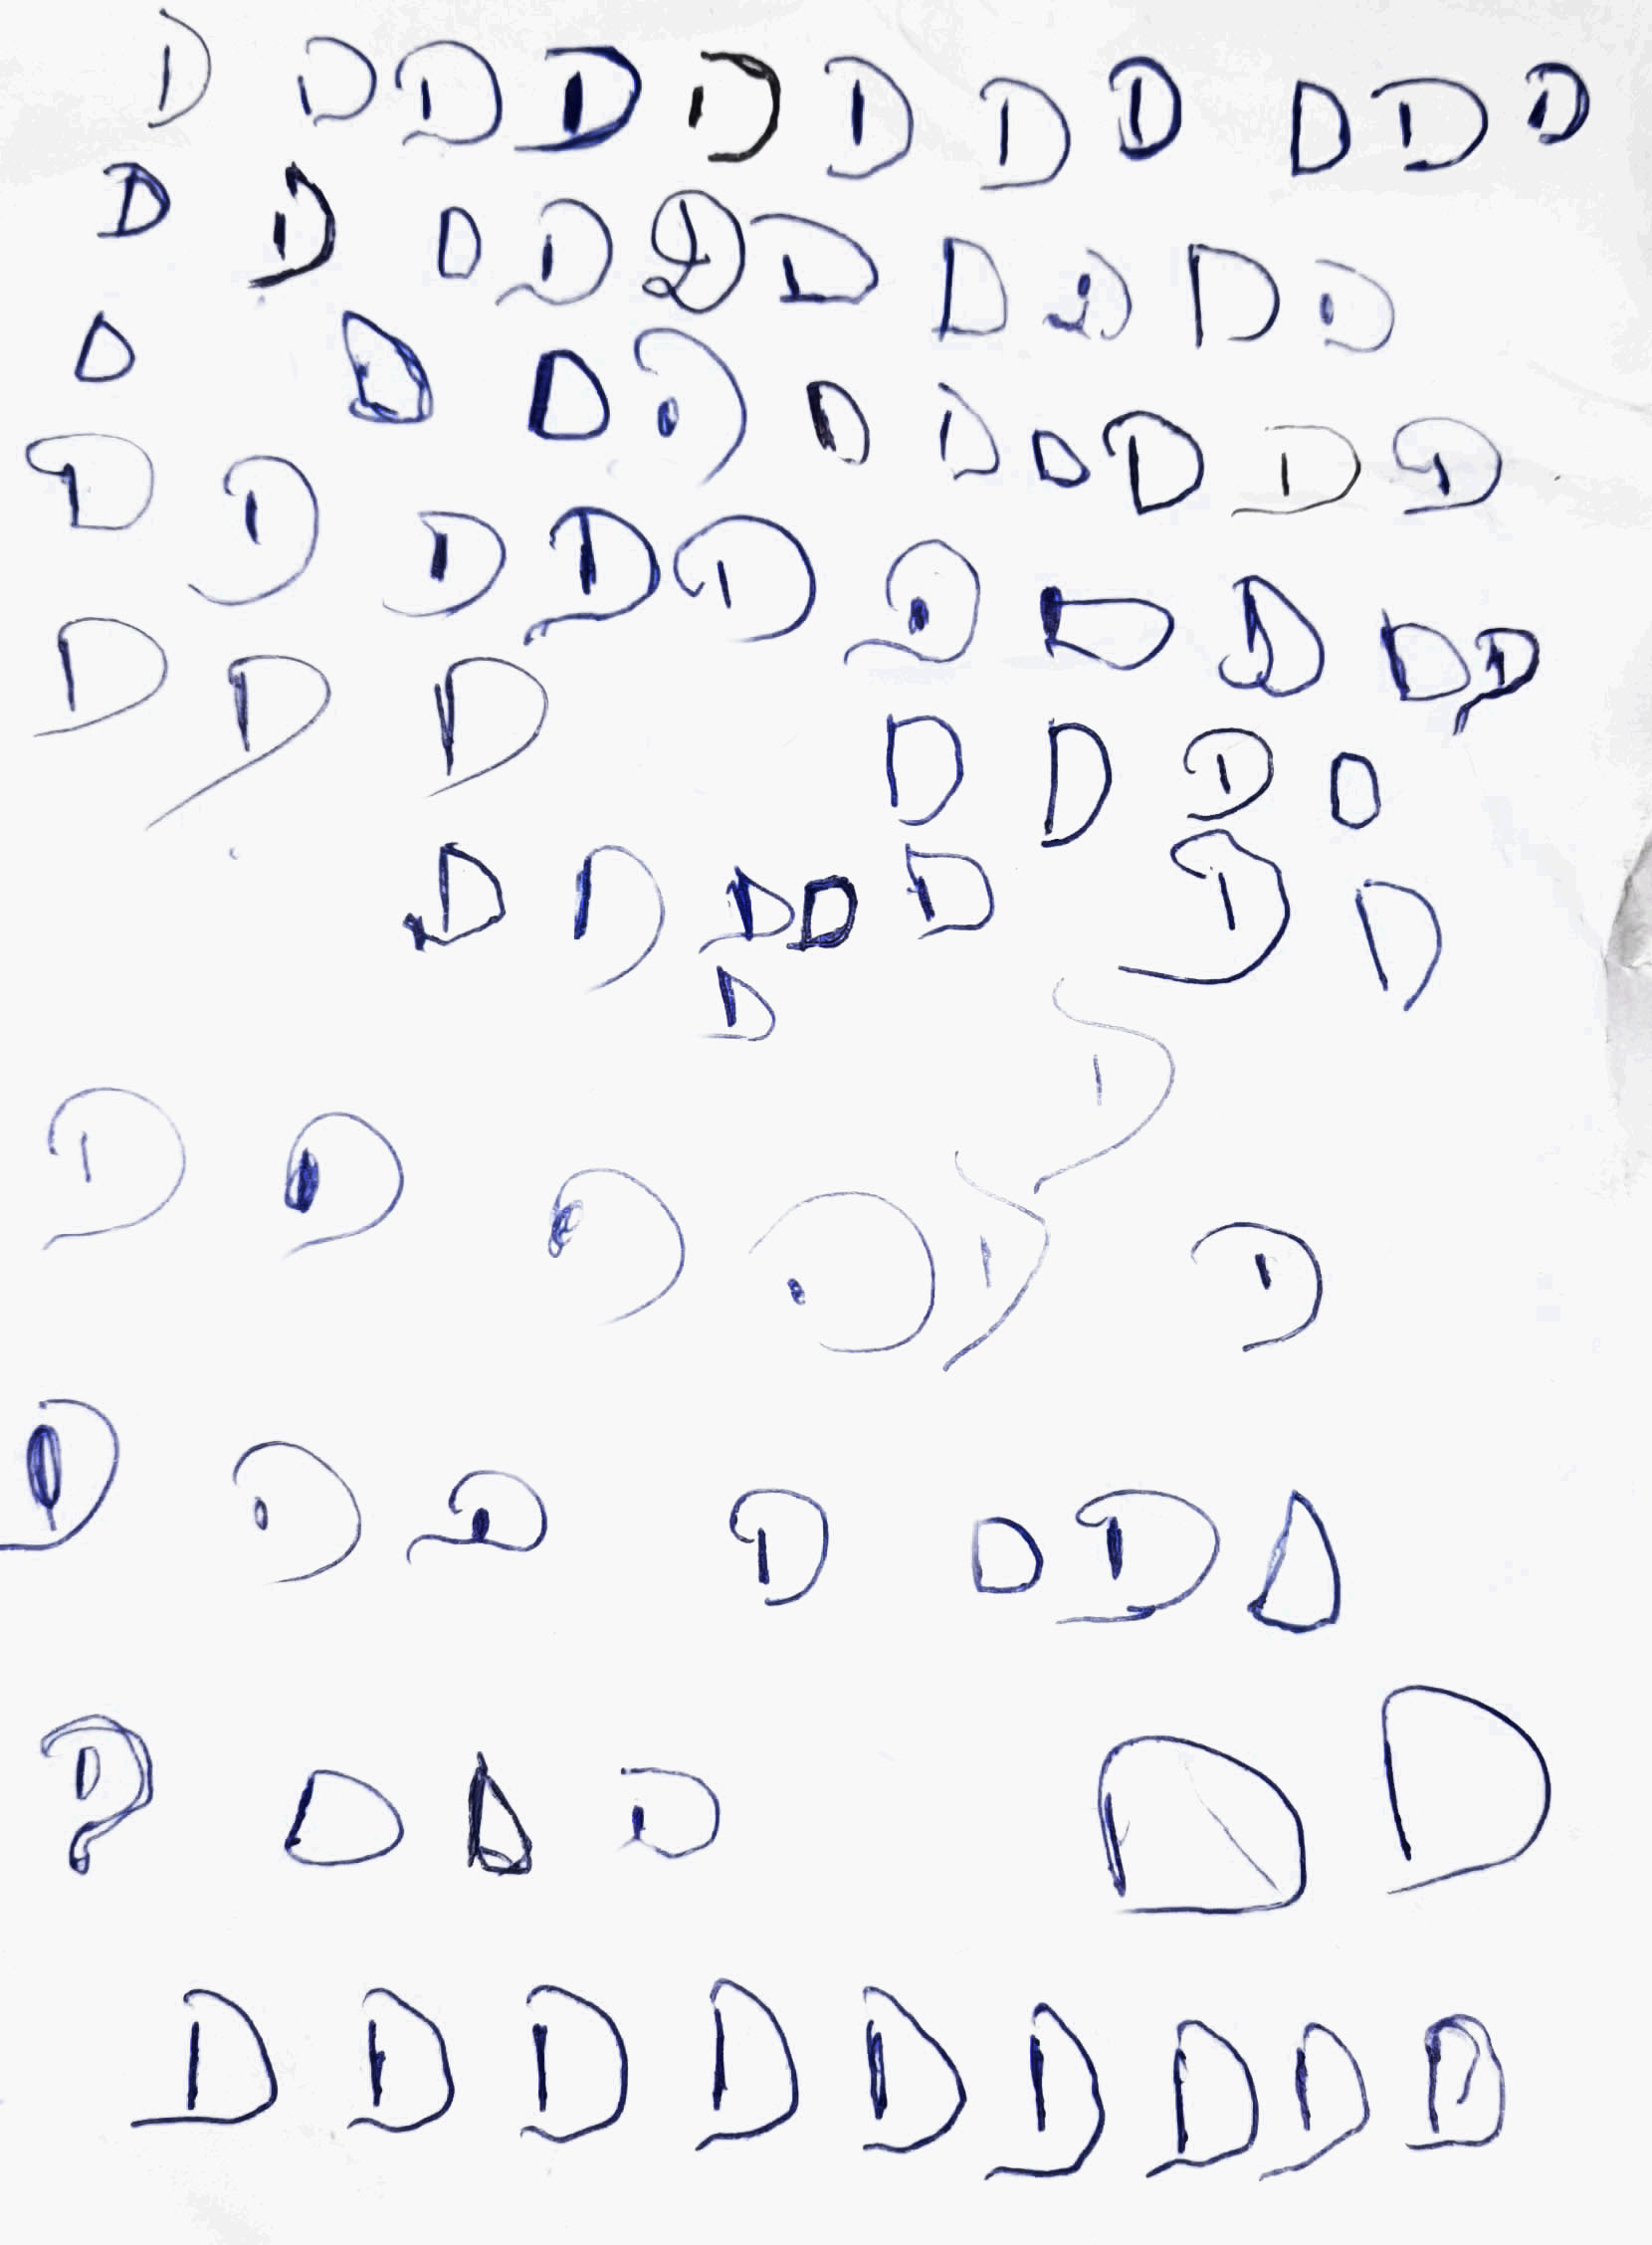 D D D D D D D D D D D
D D D D D D D D D D
D D D D D D D D D D
D D D D D D D D D D
D D D D D D D
D D D D D D D
D D
D D D D D D
D D D D D D D
D D D D D D
D D D D D D D D D